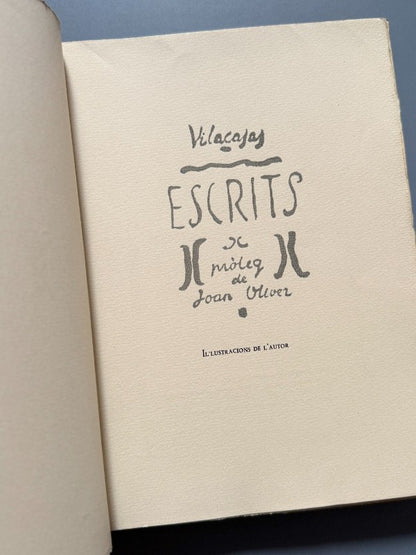 Vilacasas
ESCRITS
pròleg
de
Joan Oliver
Il·lustracions de l'autor